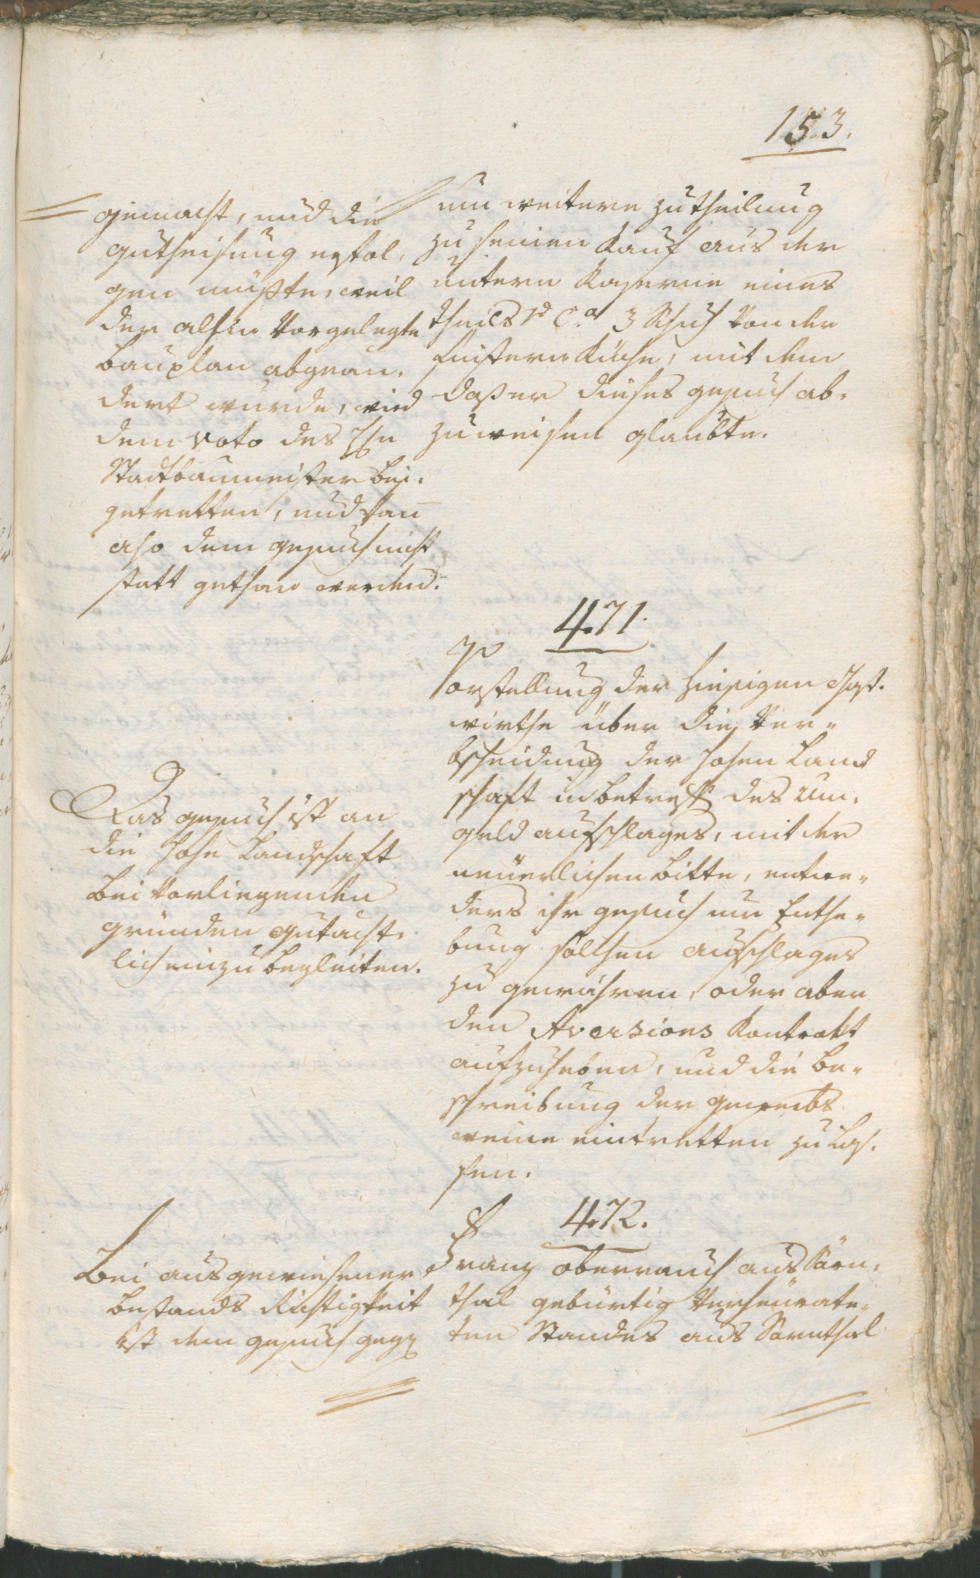 153.
gemacht, und die
gutheisung erfol-
gen müßte, weil
der alhier Vorgelegte
Bauplan abgeän-
dert wurde, wird
dem Voto des H.
Stadtbaumeister bei-
getretten, und kan
also dem gesuch nicht
statt gethan werden.
um weitere zutheilung
zu seinem Kauf aus der
untern Kaserne eines
theils 3 Schuh von der
finstern Küche, mit dem
daß er dieses gesuch ab-
zuweisen glaubte.
471.
Vorstellung der hiesigen Gast-
wirthe über die Ver-
bscheidung der hohen Land
schaft in betreff des Um-
geld aufschlages, mit der
neüerlichen bitte, entwe-
ders ihr gesuch um Enthe-
bung sollchen aufschlages
zu gewähren, oder aber
den Aversions Kontrakt
aufzuheben, und die be-
schreibung der gewerbs
weine eintretten zu las-
sen.
Das gesuch ist an
die hohe Landschaft
bei vorliegenden
gründen gutächt-
lich einzubegleiten.
472.
Franz oberrauch aus Sarn-
thal gebürtig verheürate-
ten Standes aus Sarnthal
Bei ausgewiesener
bestands Richtigkeit
ist dem gesuch gegen